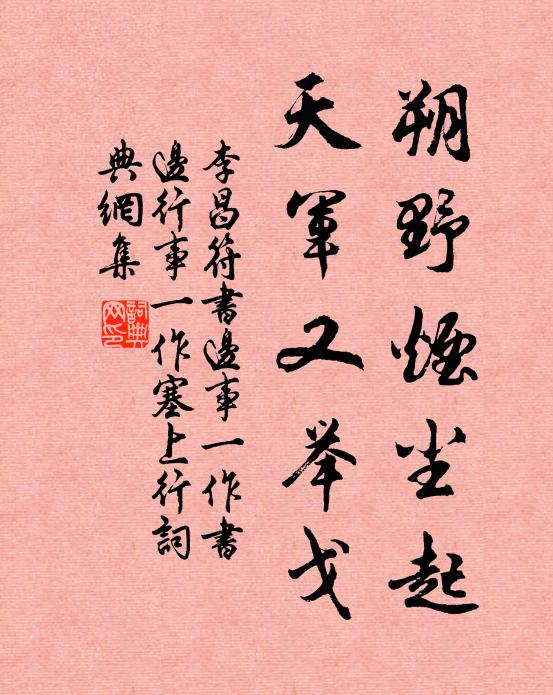 朔野煙尘起
天軍又举戈
李昌符書邊事一作書
邊行事一作塞上行詞
典網集
詞典
网印